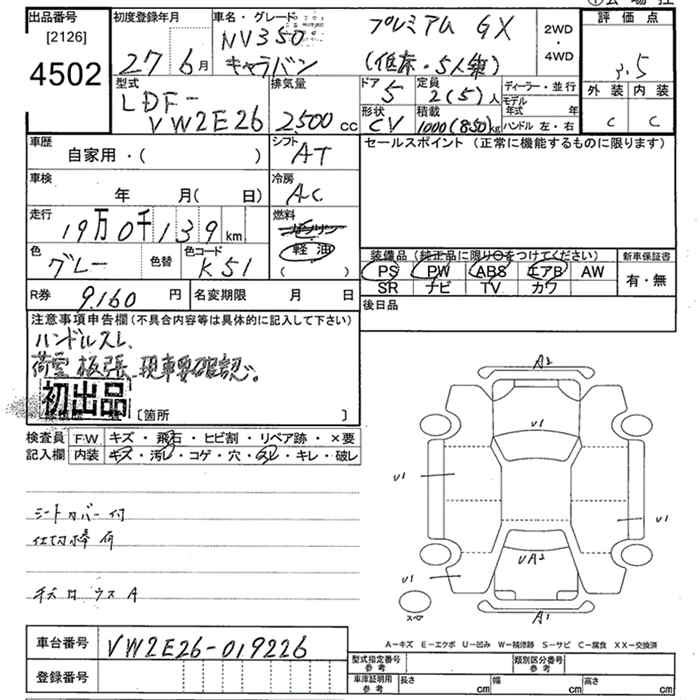 出品番号
[2126]
4502
初度登録年月
27 6月
車名・グレード
NV350
キャラバン
プレミアム GX
(低床・5人乗)
2WD
・
4WD
評価点
3.5
外装 内装
C C
型式
LDF-
VW2E26
排気量
2,500 cc
ドア
5
定員
2(5)人
形状
CV
積載
1000(850)kg
ディーラー・並行
モデル
年式 年
ハンドル 左・右
車歴
自家用・( )
シフト
AT
セールスポイント (正常に機能するものに限ります)
車検
年 月( 日)
冷房
AC
走行
19万0千139km
燃料
ガソリン
軽油
( )
色
グレー
色替
色コード
K51
装備品(純正品に限り○をつけてください)
PS PW ABS エアB AW
SR ナビ TV カワ
新車保証書
有・無
R券
9,160 円
名変期限 月 日
後日品
注意事項申告欄(不具合内容等は具体的に記入して下さい)
ハンドルスレ、
荷室板張、現車要確認。
初出品
[箇所 ]
検査員
記入欄
F/W キズ・飛石・ヒビ割・リペア跡・×要
内装 キズ・汚レ・コゲ・穴・スレ・キレ・破レ
シートカバー付
仕切棒有
キズ凹ウスA
A2
U1
U1
U1
UA2
U1
スペア
A1
A−キズ E−エクボ U−凹み W−補修跡 S−サビ C−腐食 XX−交換済
車台番号
VW2E26-019226
登録番号
型式指定番号
参考
類別区分番号
参考
車庫証明用
参考
長さ cm
幅 cm
高さ cm